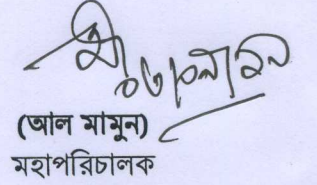 (আল মামুন)
মহাপরিচালক